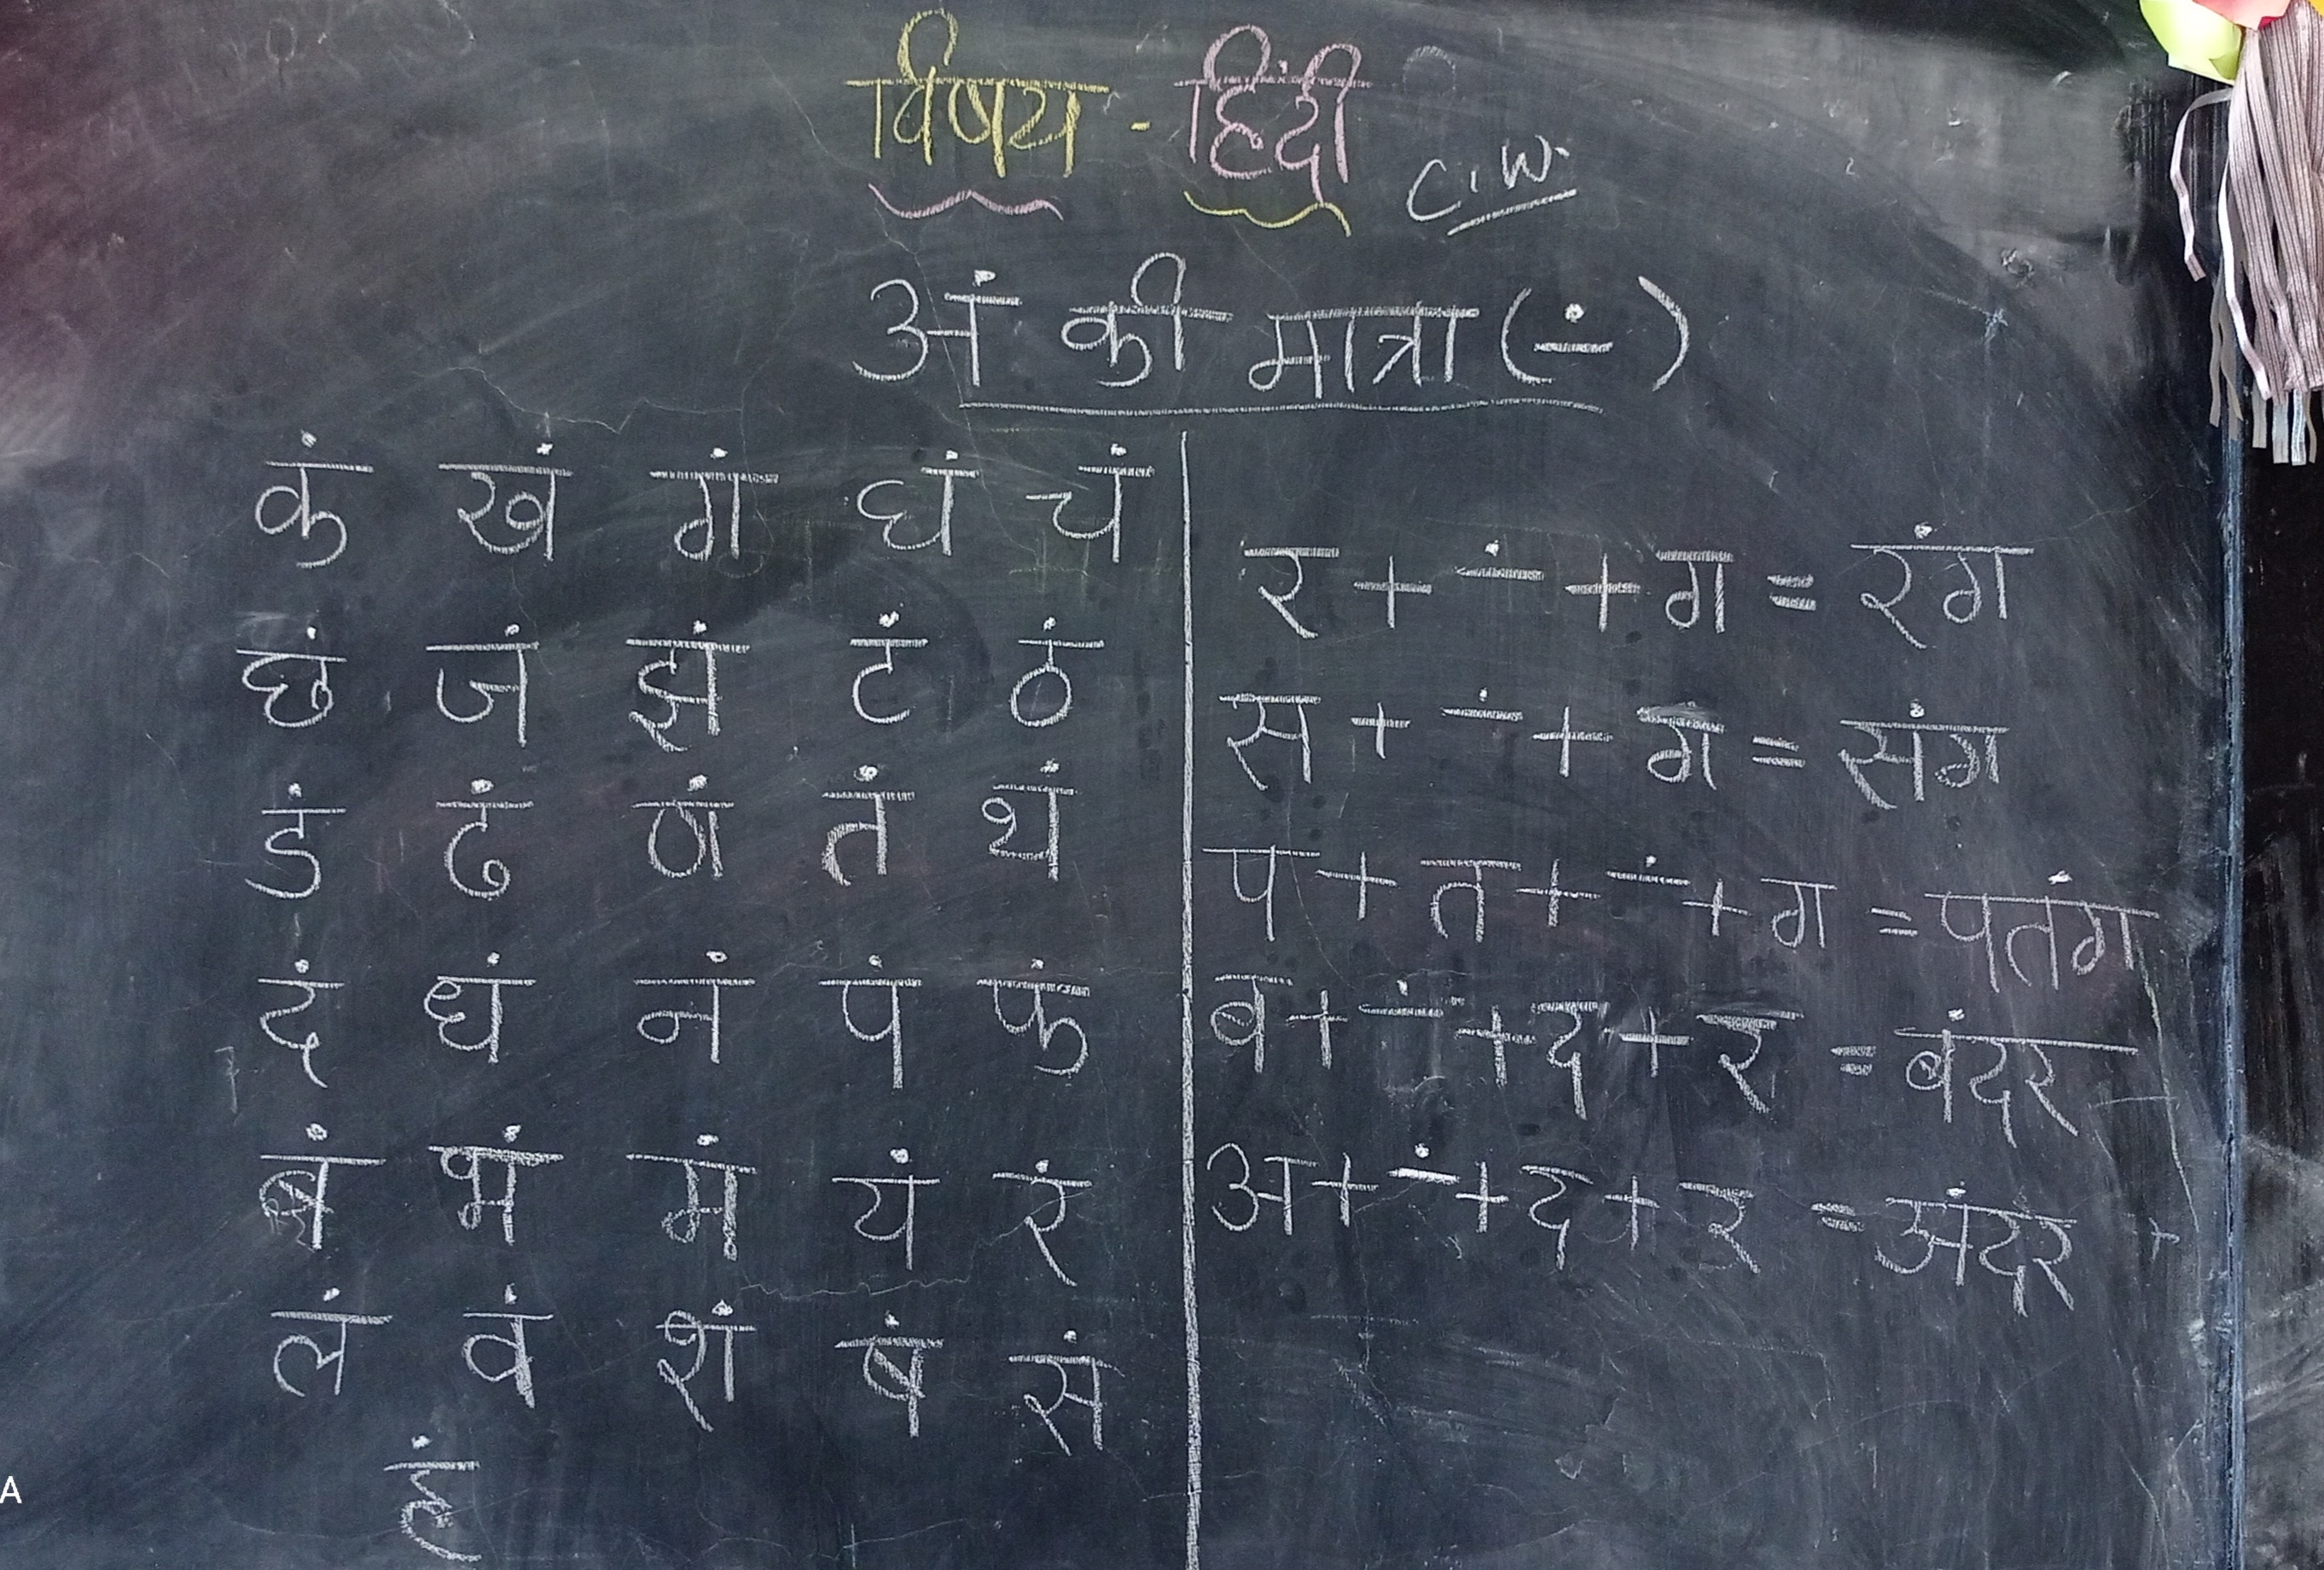 विषय - हिंदी
C.W.
अं की मात्रा (-ं)
कं खं गं घं चं
छं जं झं टं ठं
डं ढं णं तं थं
दं धं नं पं फं
बं भं मं यं रं
लं वं शं षं सं
हं
र + -ं + ग = रंग
स + -ं + ग = संग
प + त + -ं + ग = पतंग
ब + -ं + द + र = बंदर
अ + -ं + द + र = अंदर
A